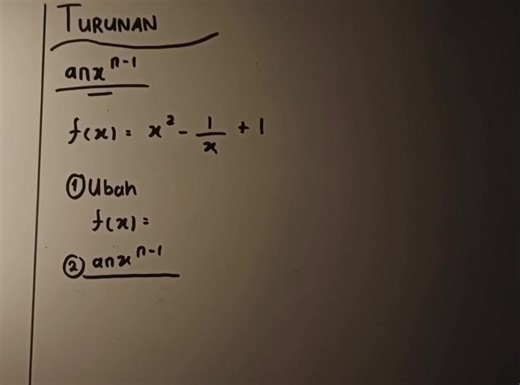 TURUNAN
anx^{n-1}
f(x) = x² - 1/x + 1
① Ubah
f(x) =
② anx^{n-1}